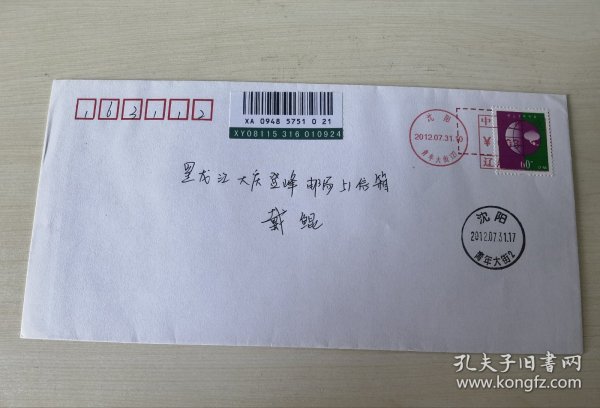 163112
XA 0948 5751 0 21
XY08115 316 010924
黑龙江大庆登峰邮局51信箱
戴鲲
沈阳
2012.07.31.10
青年大街(2)
中
¥
辽
60
沈阳
2012.07.31.17
青年大街2
孔夫子旧书网
www.kongfz.com